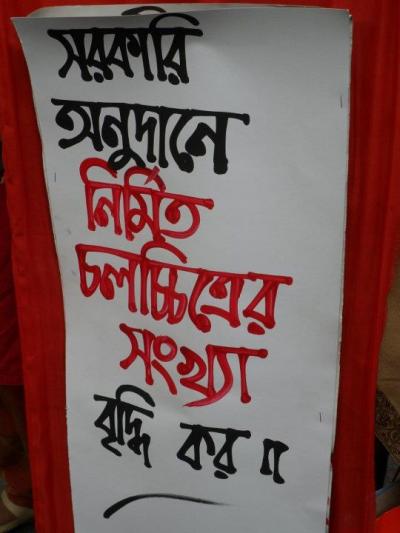 সরকারি
অনুদানে
নির্মিত
চলচ্চিত্রের
সংখ্যা
বৃদ্ধি কর॥